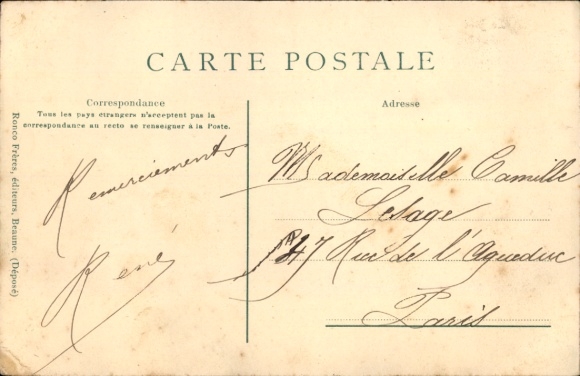 CARTE POSTALE
Correspondance
Tous les pays étrangers n'acceptent pas la
correspondance au recto se renseigner à la Poste.
Remerciements
René
Adresse
Mademoiselle Camille
Lesage
47 Rue de l'Aqueduc
Paris
Ronco Frères, éditeurs, Beaune. (Déposé)